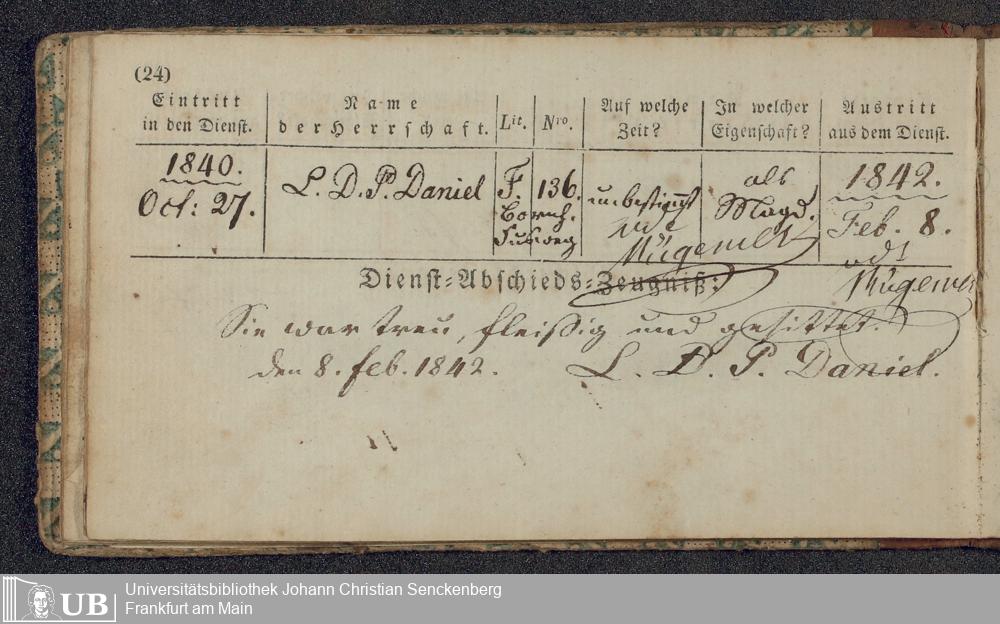 (24)
Eintritt in den Dienst.
Name der Herrschaft.
Lit.
Nro.
Auf welche Zeit?
In welcher Eigenschaft?
Austritt aus dem Dienst.
1840.
Oct: 27.
L. D. P. Daniel
F. 136.
Bornh.
unbestimmt
als
Magd.
1842.
Feb. 8.
Dienst=Abschieds=Zeugniß:
Sie war treu, fleißig und gesittet.
den 8. Feb. 1842.
L. D. P. Daniel.
UB
Universitätsbibliothek Johann Christian Senckenberg
Frankfurt am Main